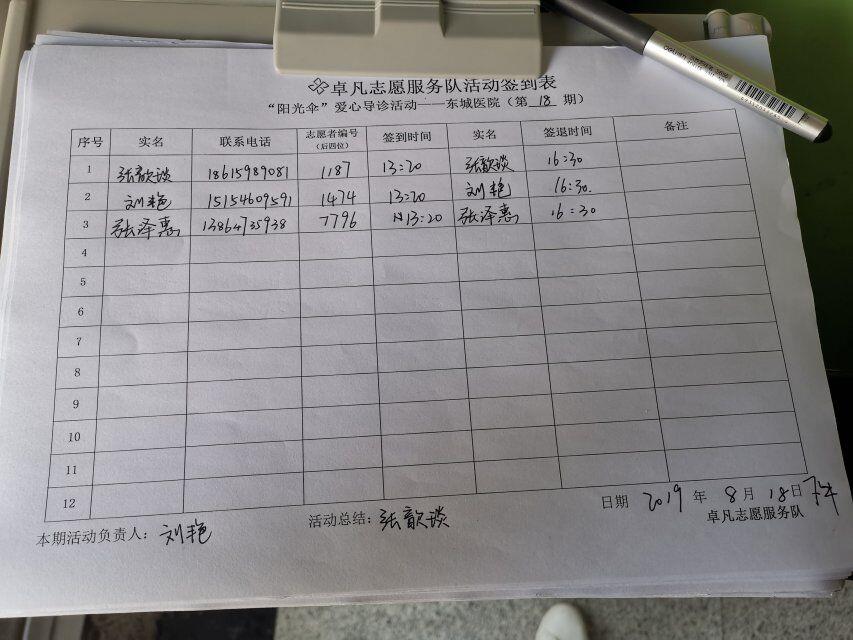 卓凡志愿服务队活动签到表
“阳光伞”爱心导诊活动——东城医院（第 18 期）
序号 实名 联系电话 志愿者编号（后四位） 签到时间 实名 签退时间 备注
1 张歆琰 18615989081 1187 13:20 张歆琰 16:30
2 刘艳 15154609591 1474 13:20 刘艳 16:30.
3 张泽惠 13864735938 7796 13:20 张泽惠 16:30
4
5
6
7
8
9
10
11
12
日期 2019 年 8 月 18 日 下午
本期活动负责人：刘艳 活动总结：张歆琰 卓凡志愿服务队